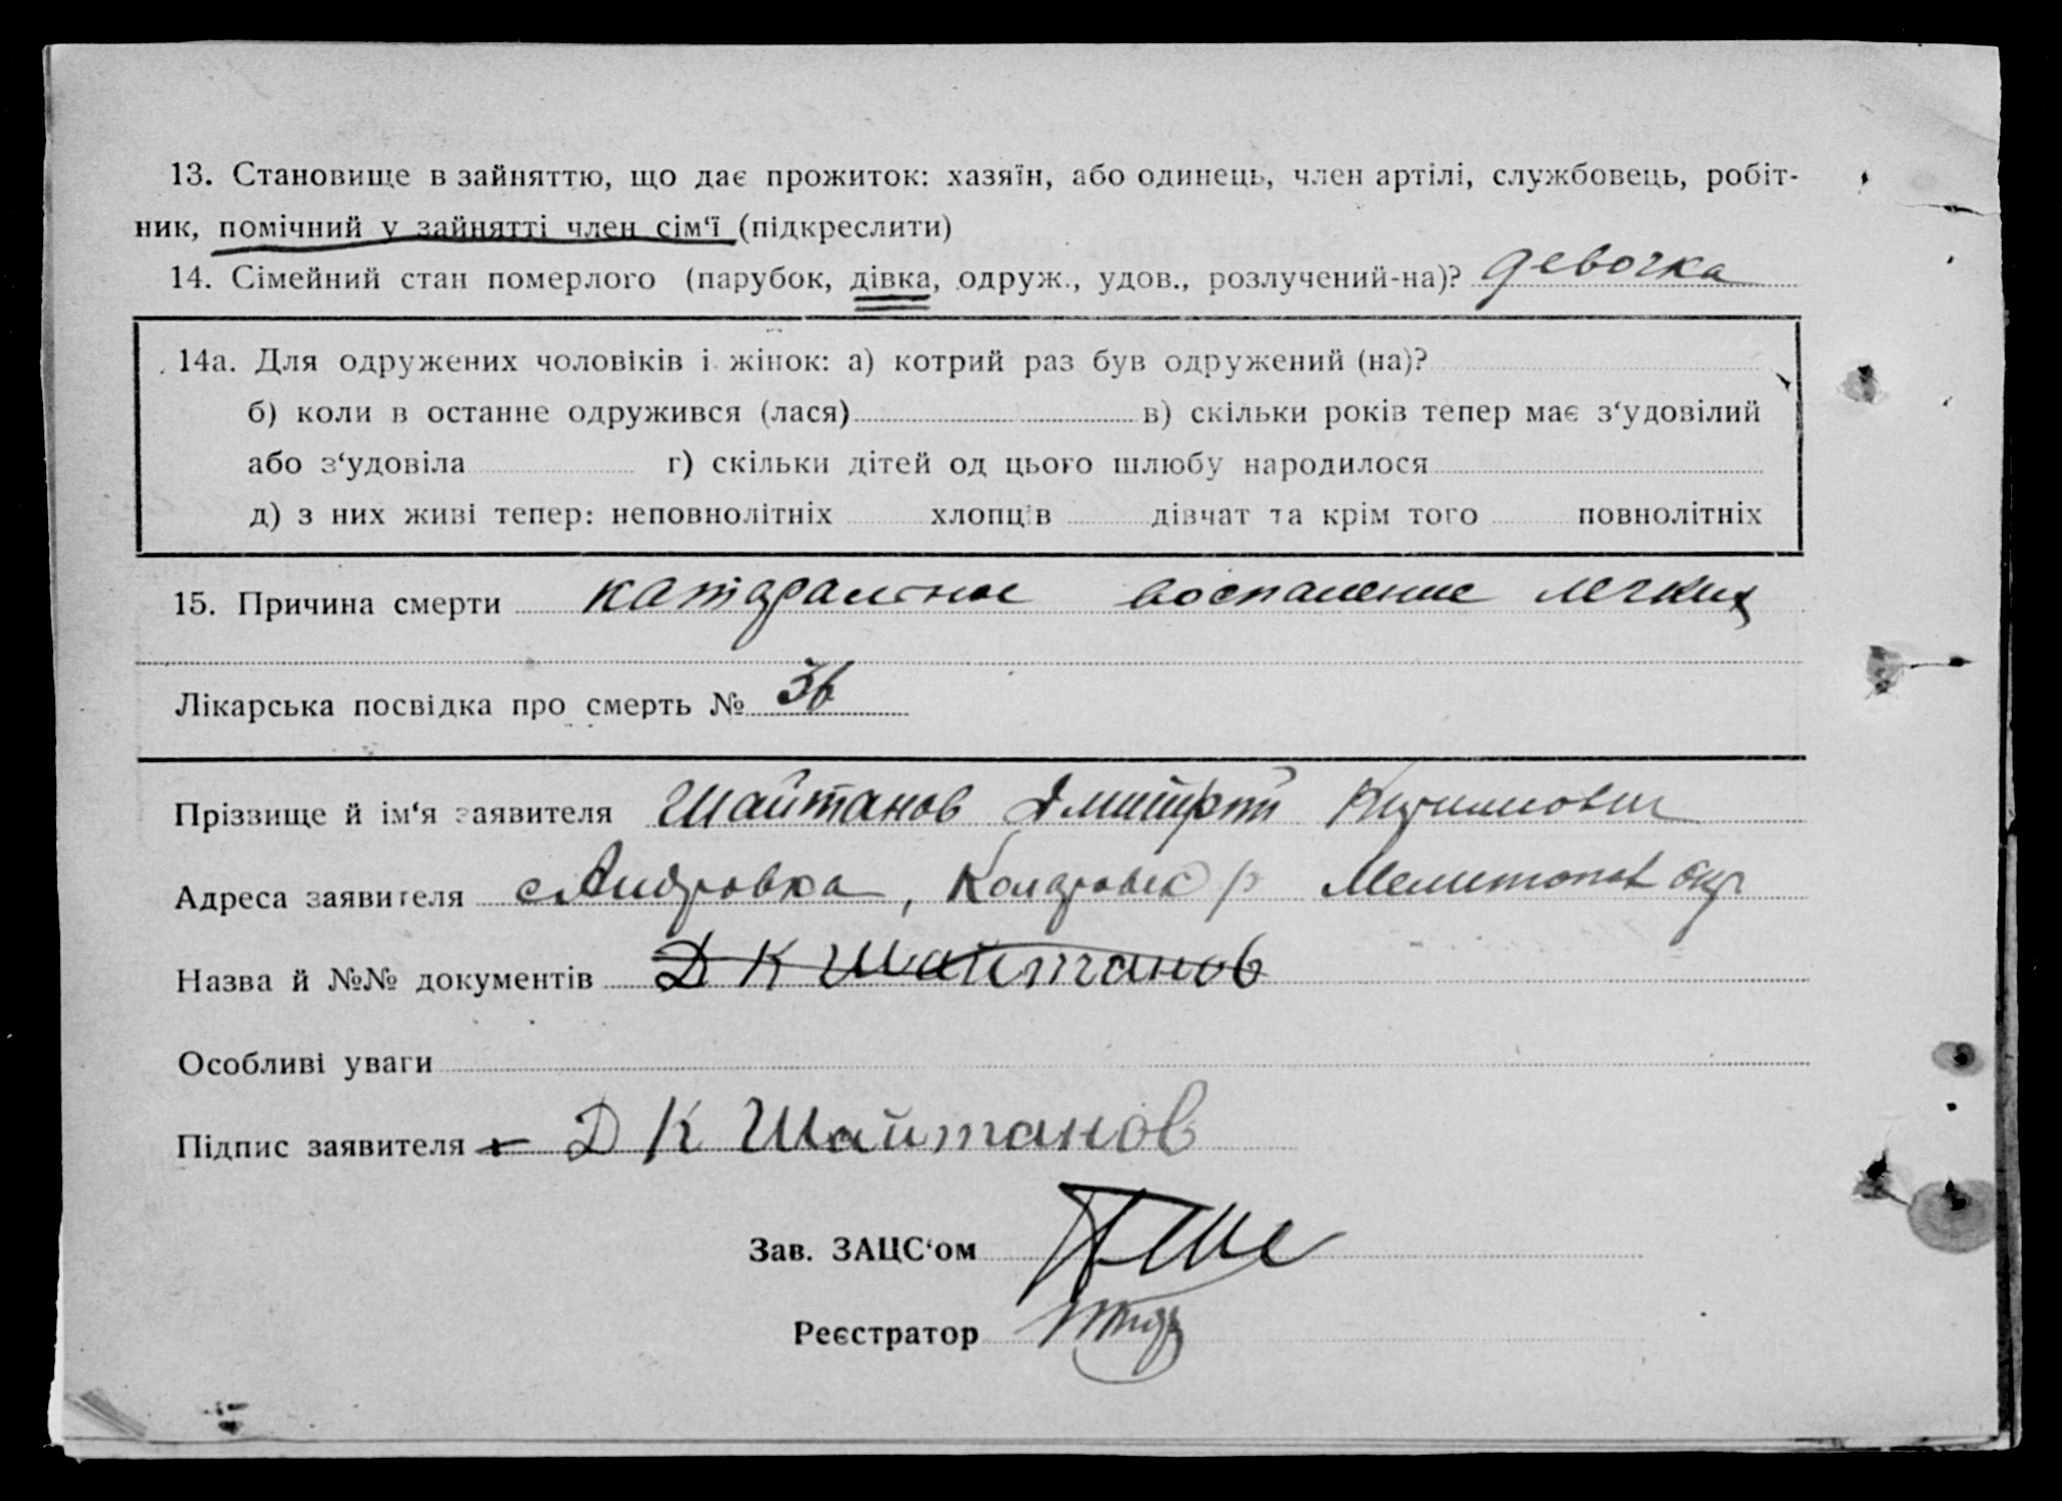 13. Становище в зайняттю, що дає прожиток: хазяїн, або одинець, член артілі, службовець, робіт-
ник, помічний у зайнятті член сім‘ї (підкреслити)
14. Сімейний стан померлого (парубок, дівка, одруж., удов., розлучений-на)? девочка
14а. Для одружених чоловіків і жінок: а) котрий раз був одружений (на)?
б) коли в останнє одружився (лася) в) скільки років тепер має з‘удовілий
або з‘удовіла г) скільки дітей од цього шлюбу народилося
д) з них живі тепер: неповнолітніх хлопців дівчат та крім того повнолітніх
15. Причина смерти катаральное воспаление легких
Лікарська посвідка про смерть № 36
Прізвище й ім‘я заявителя Шайтанов Дмитрий
Адреса заявителя с Андровка, Коларовск р Мелитопол окр
Назва й №№ документів Д К Шайтанов
Особливі уваги
Підпис заявителя Д К Шайтанов
Зав. ЗАЦС‘ом
Реєстратор